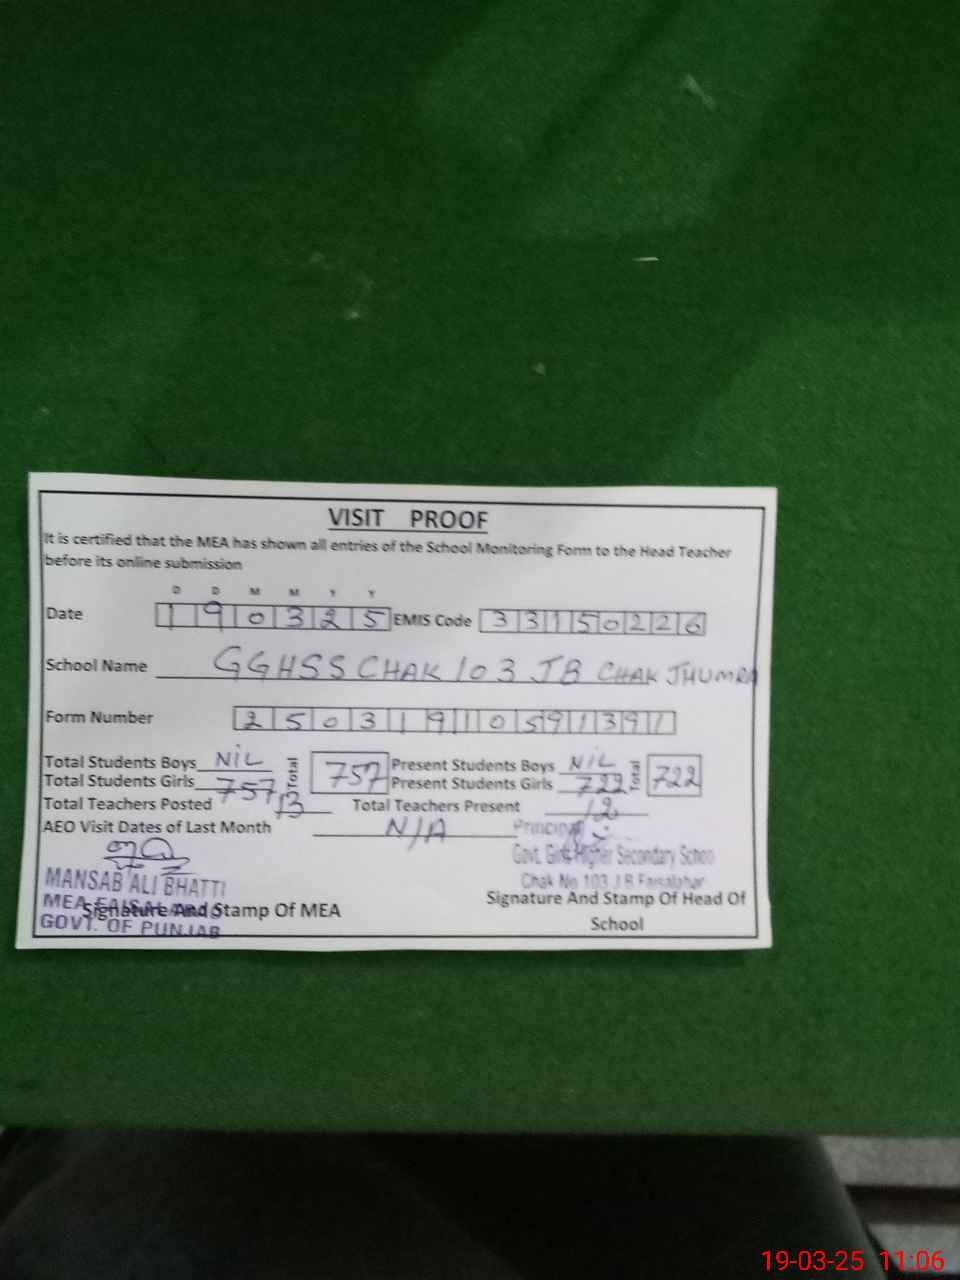 VISIT PROOF
It is certified that the MEA has shown all entries of the School Monitoring Form to the Head Teacher
before its online submission
D D M M Y Y
Date 190325 EMIS Code 33150226
School Name GGHSS CHAK 103 JB CHAK JHUMRA
Form Number 25031910591391
Total Students Boys NIL Total 757 Present Students Boys NIL Total 722
Total Students Girls 757 Present Students Girls 722
Total Teachers Posted 13 Total Teachers Present 12
AEO Visit Dates of Last Month N/A Principal
Govt. Girls Higher Secondary School
MANSAB ALI BHATTI Chak No 103 J.B Faisalabad
MEA
Signature And Stamp Of MEA Signature And Stamp Of Head Of
GOVT. OF PUNJAB School
19-03-25 11:06